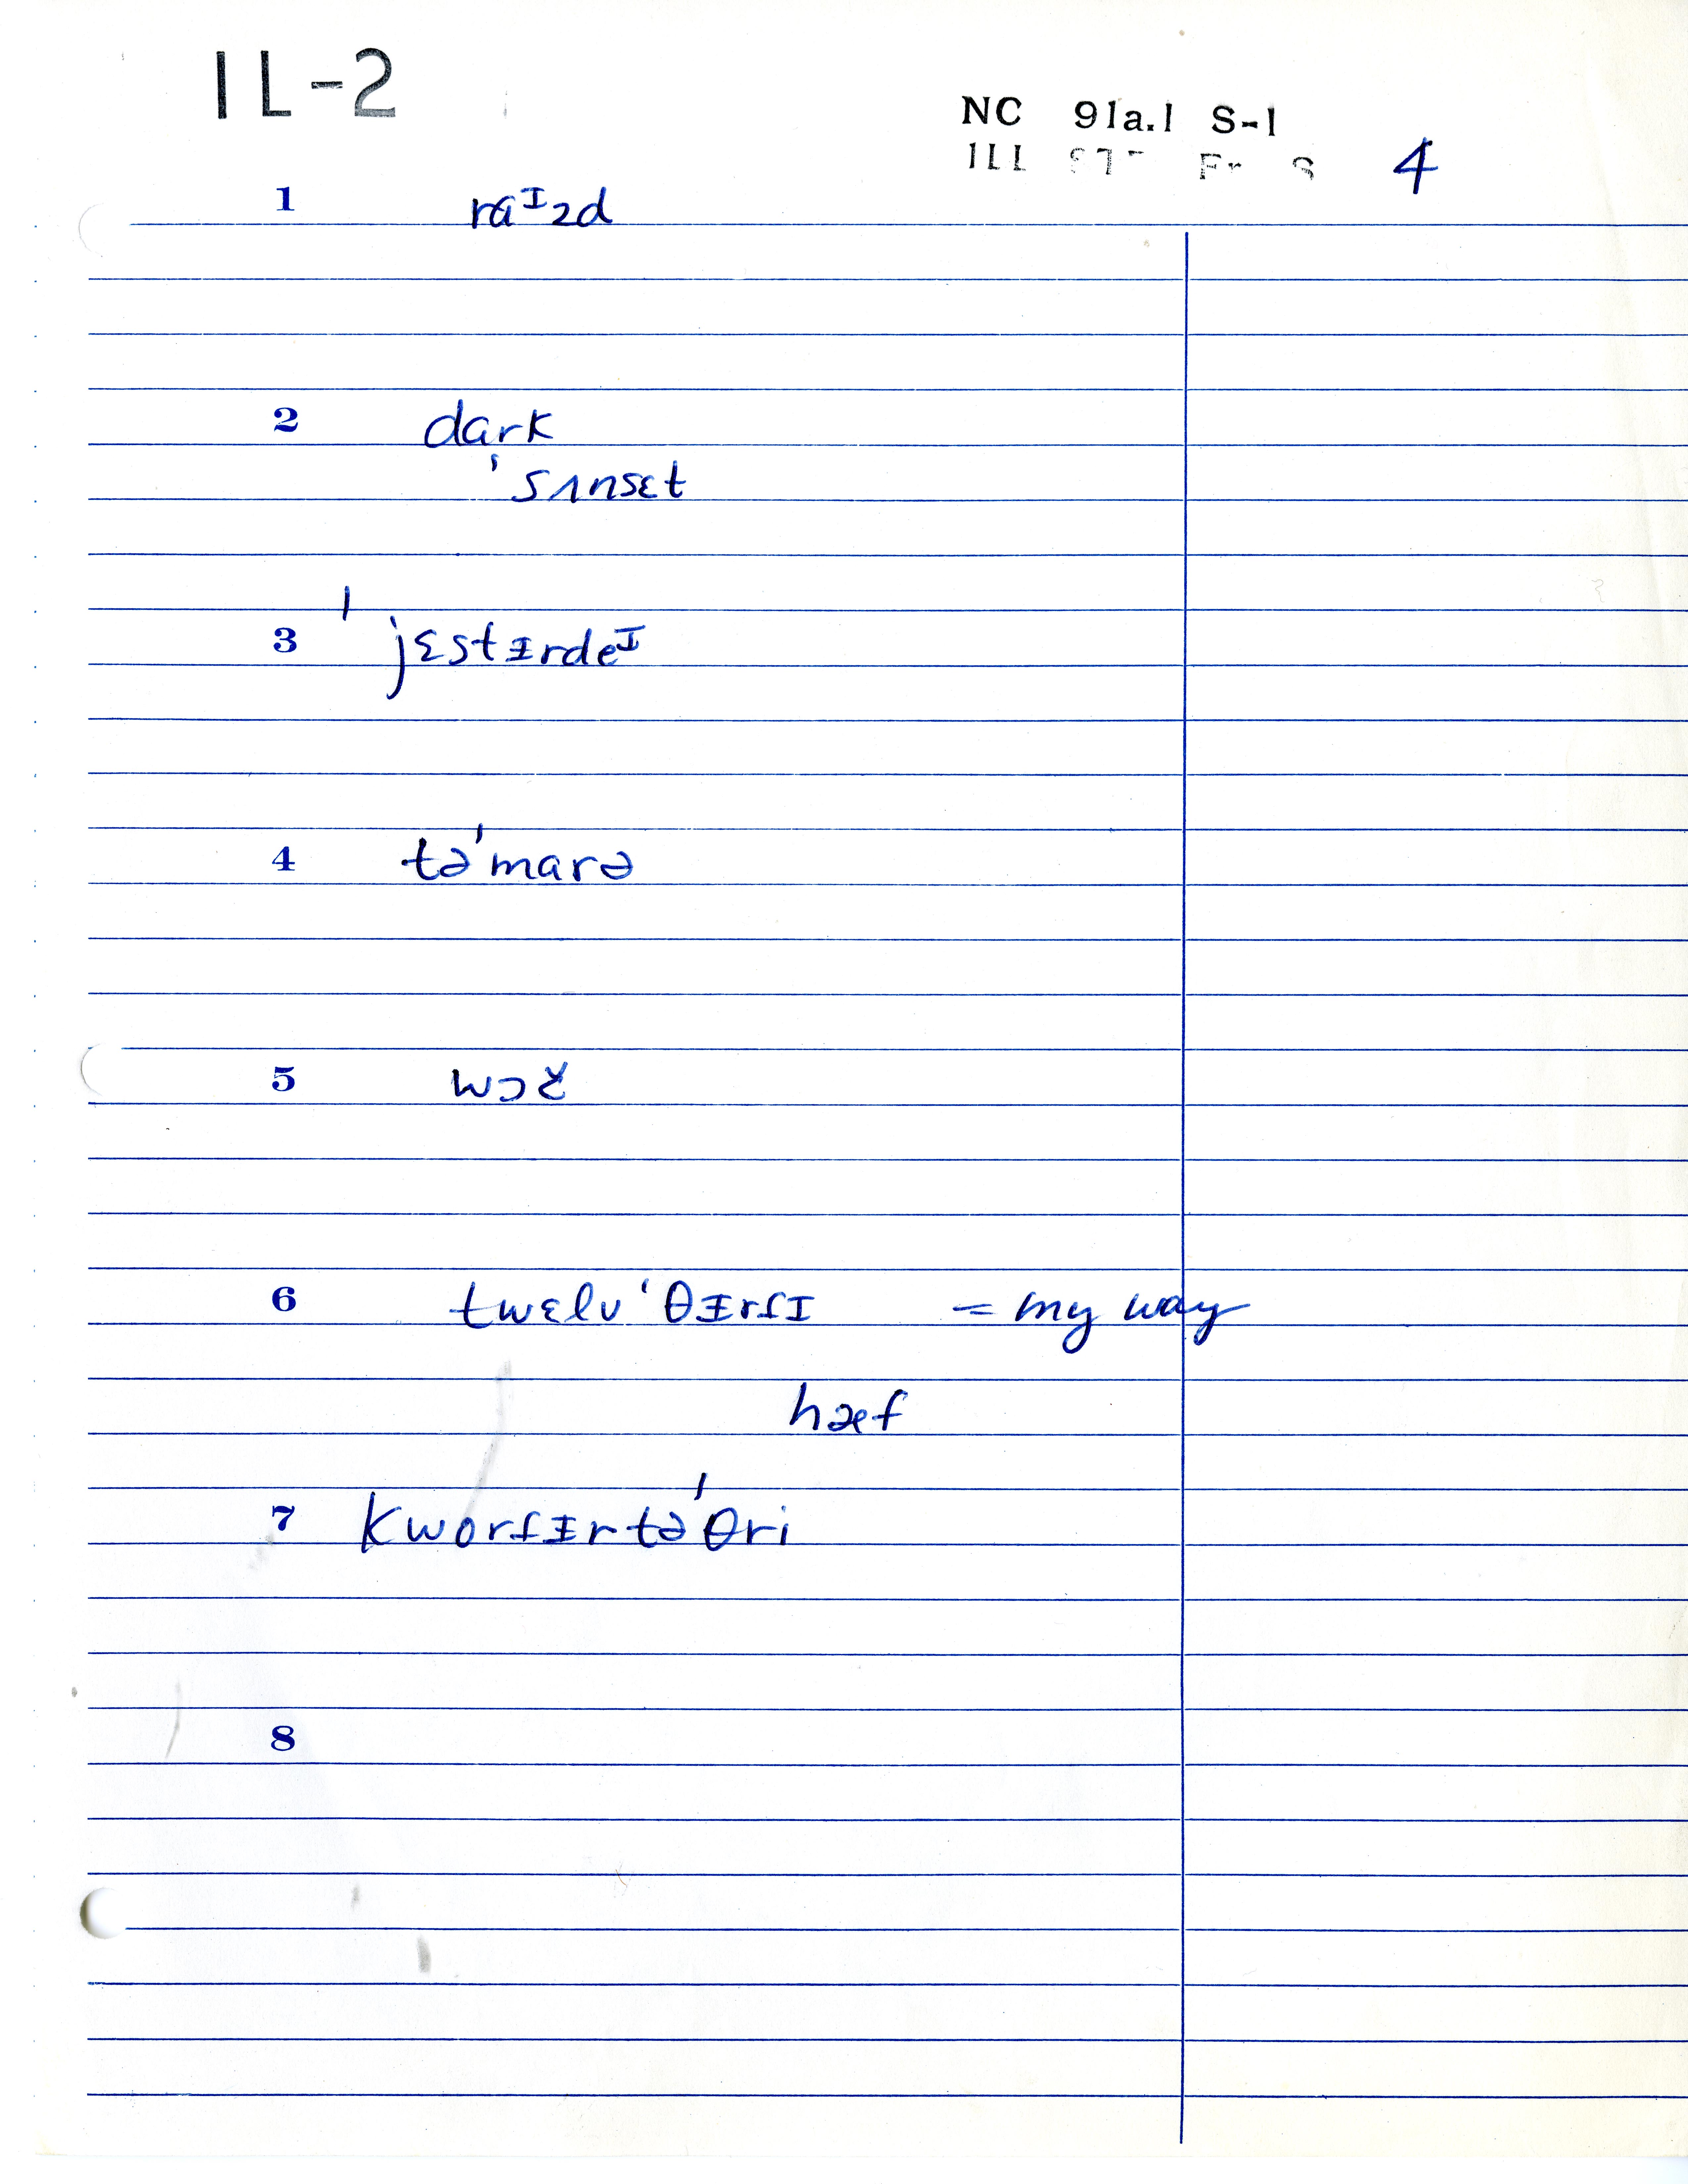 IL-2
NC 91a.1 S-1
ILL
4
1 raᶦzd
2 dark
ˈsʌnsɛt
3 ˈjɛstᵻrdeᶦ
4 təˈmarə
5 wɔč
6 twɛlv ˈθᵻrɾɪ = my way
hæf
7 kworɾᵻrtəˈθri
8